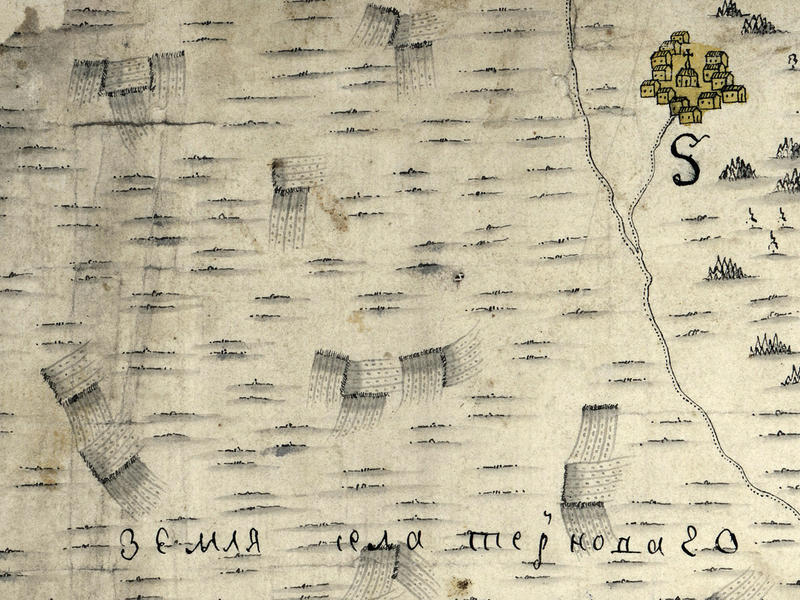 S
земля села терноваго